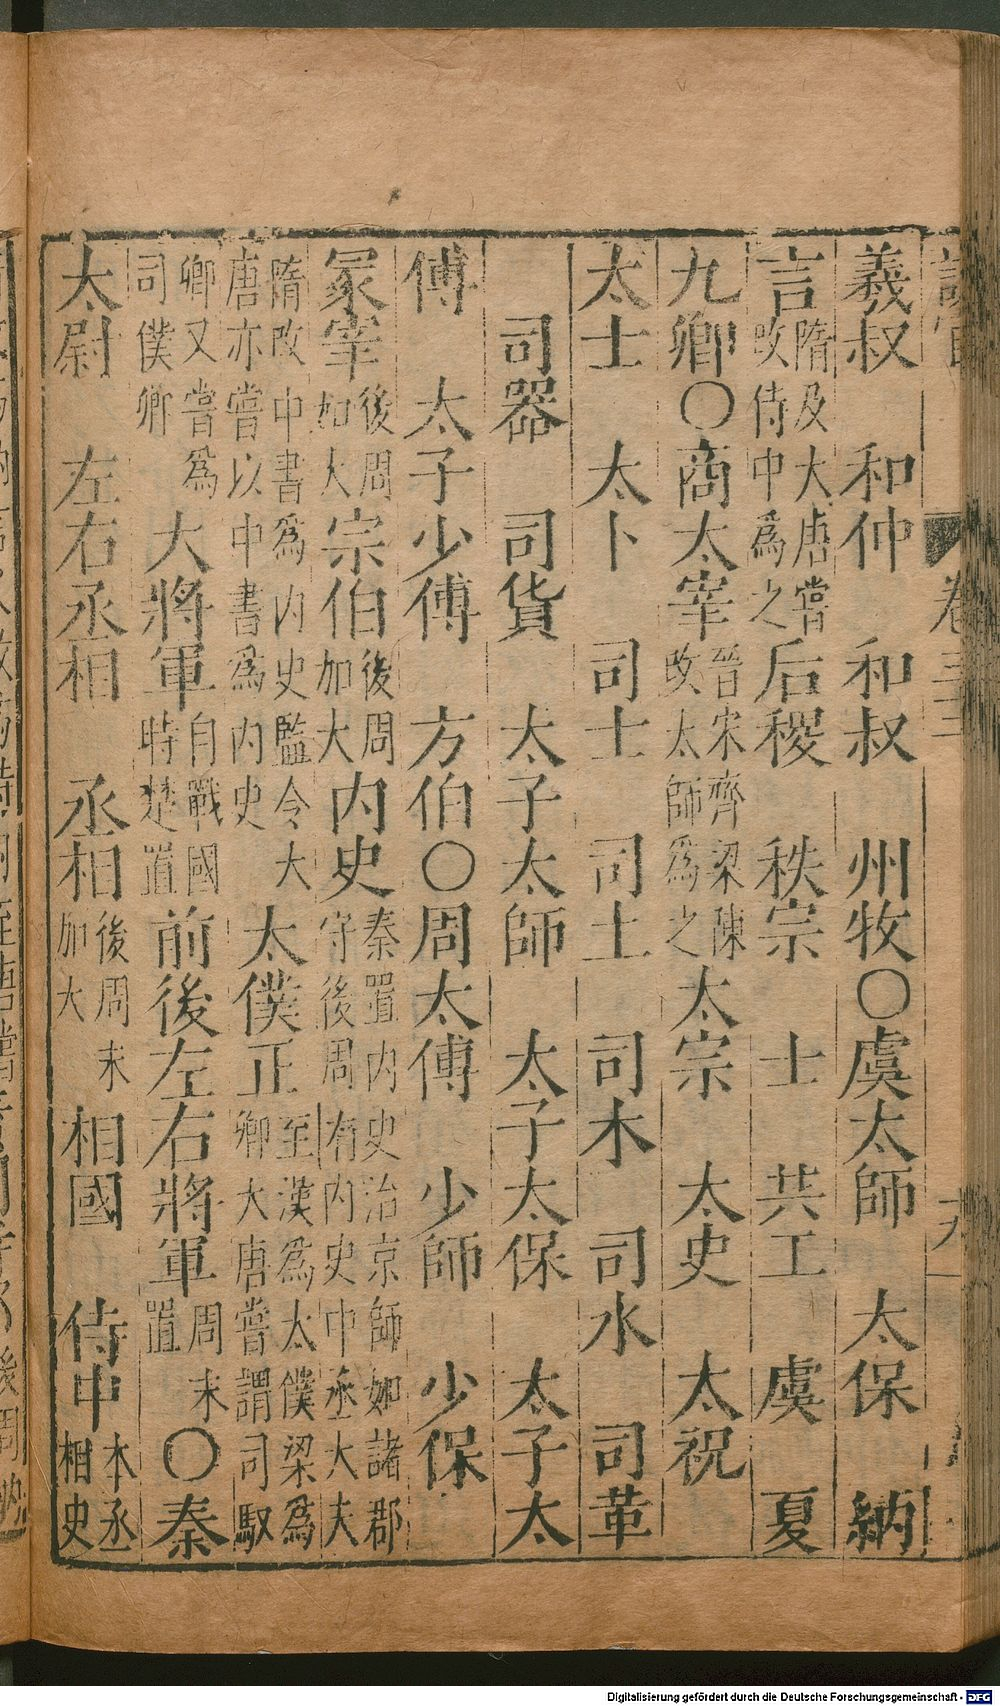 義叔　和仲　和叔　州牧○虞太師　太保　納
言隋及大唐嘗改侍中爲之后稷　秩宗　士　共工　虞　夏
九卿○商太宰晉宋齊梁陳改太師爲之太宗　太史　太祝
太士　太卜　司士　司土　司木　司水　司革
司器　司貨　太子太師　太子太保　太子太
傅　太子少傅　方伯○周太傅　少師　少保
冡宰後周如大宗伯後周加大內史秦置內史治京師如諸郡守後周有內史中丞大夫
隋改中書爲內史監令大唐亦嘗以中書爲內史太僕正至漢爲太僕梁爲卿大唐嘗謂司馭
卿又嘗爲司僕卿大將軍自戰國時楚置前後左右將軍周末置○秦
太尉　左右丞相　丞相後周末加大相國　侍中本丞相史
卷三三
Digitalisierung gefördert durch die Deutsche Forschungsgemeinschaft - DFG